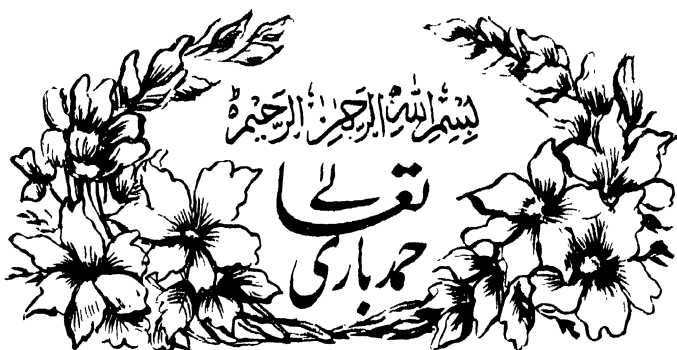 بِسْمِ اللّٰهِ الرَّحْمٰنِ الرَّحِيْمِ
حمد باری تعالیٰ